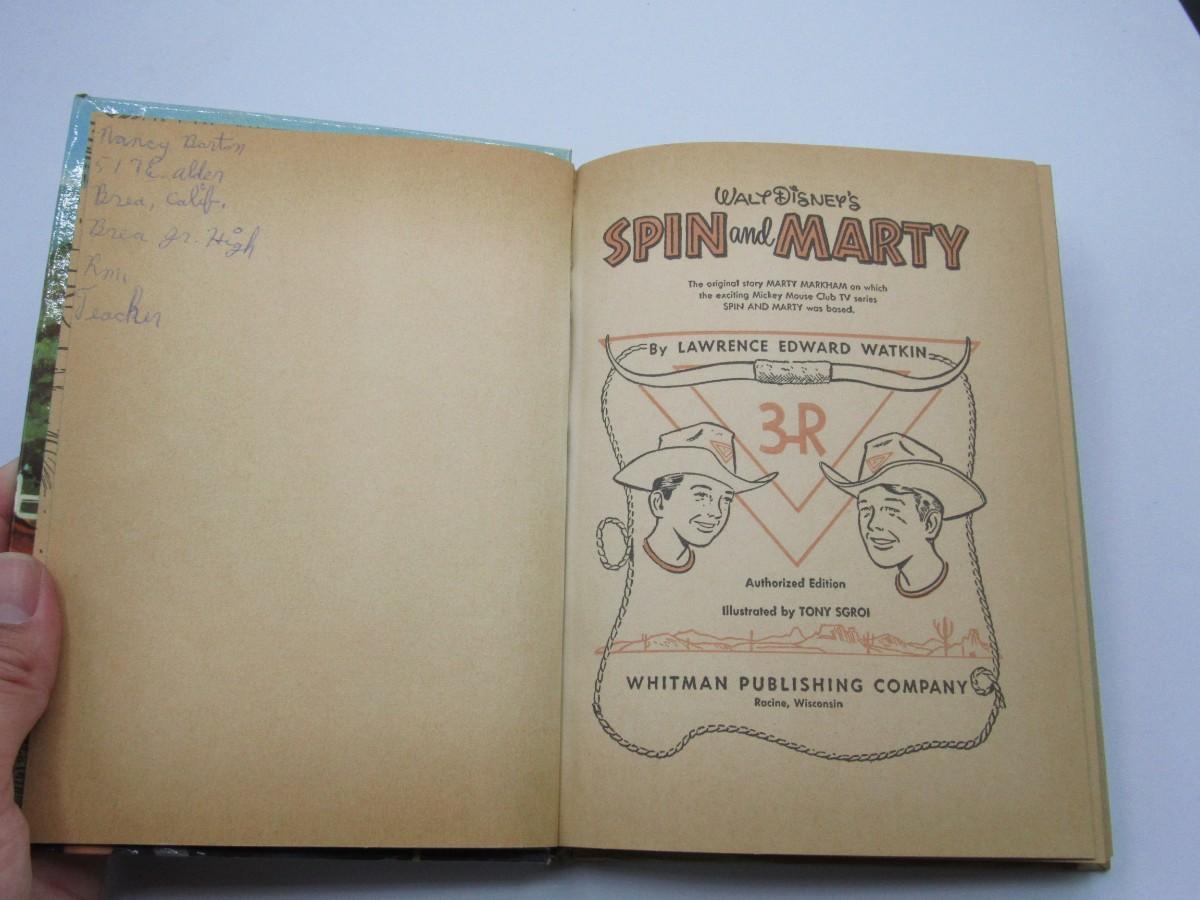 Nancy Barton
517 E. alder
Brea, Calif.
Brea Jr. High
Rm.
Teacher
WALT DISNEY'S
SPIN and MARTY
The original story MARTY MARKHAM on which
the exciting Mickey Mouse Club TV series
SPIN AND MARTY was based.
By LAWRENCE EDWARD WATKIN
3-R
Authorized Edition
Illustrated by TONY SGROI
WHITMAN PUBLISHING COMPANY
Racine, Wisconsin